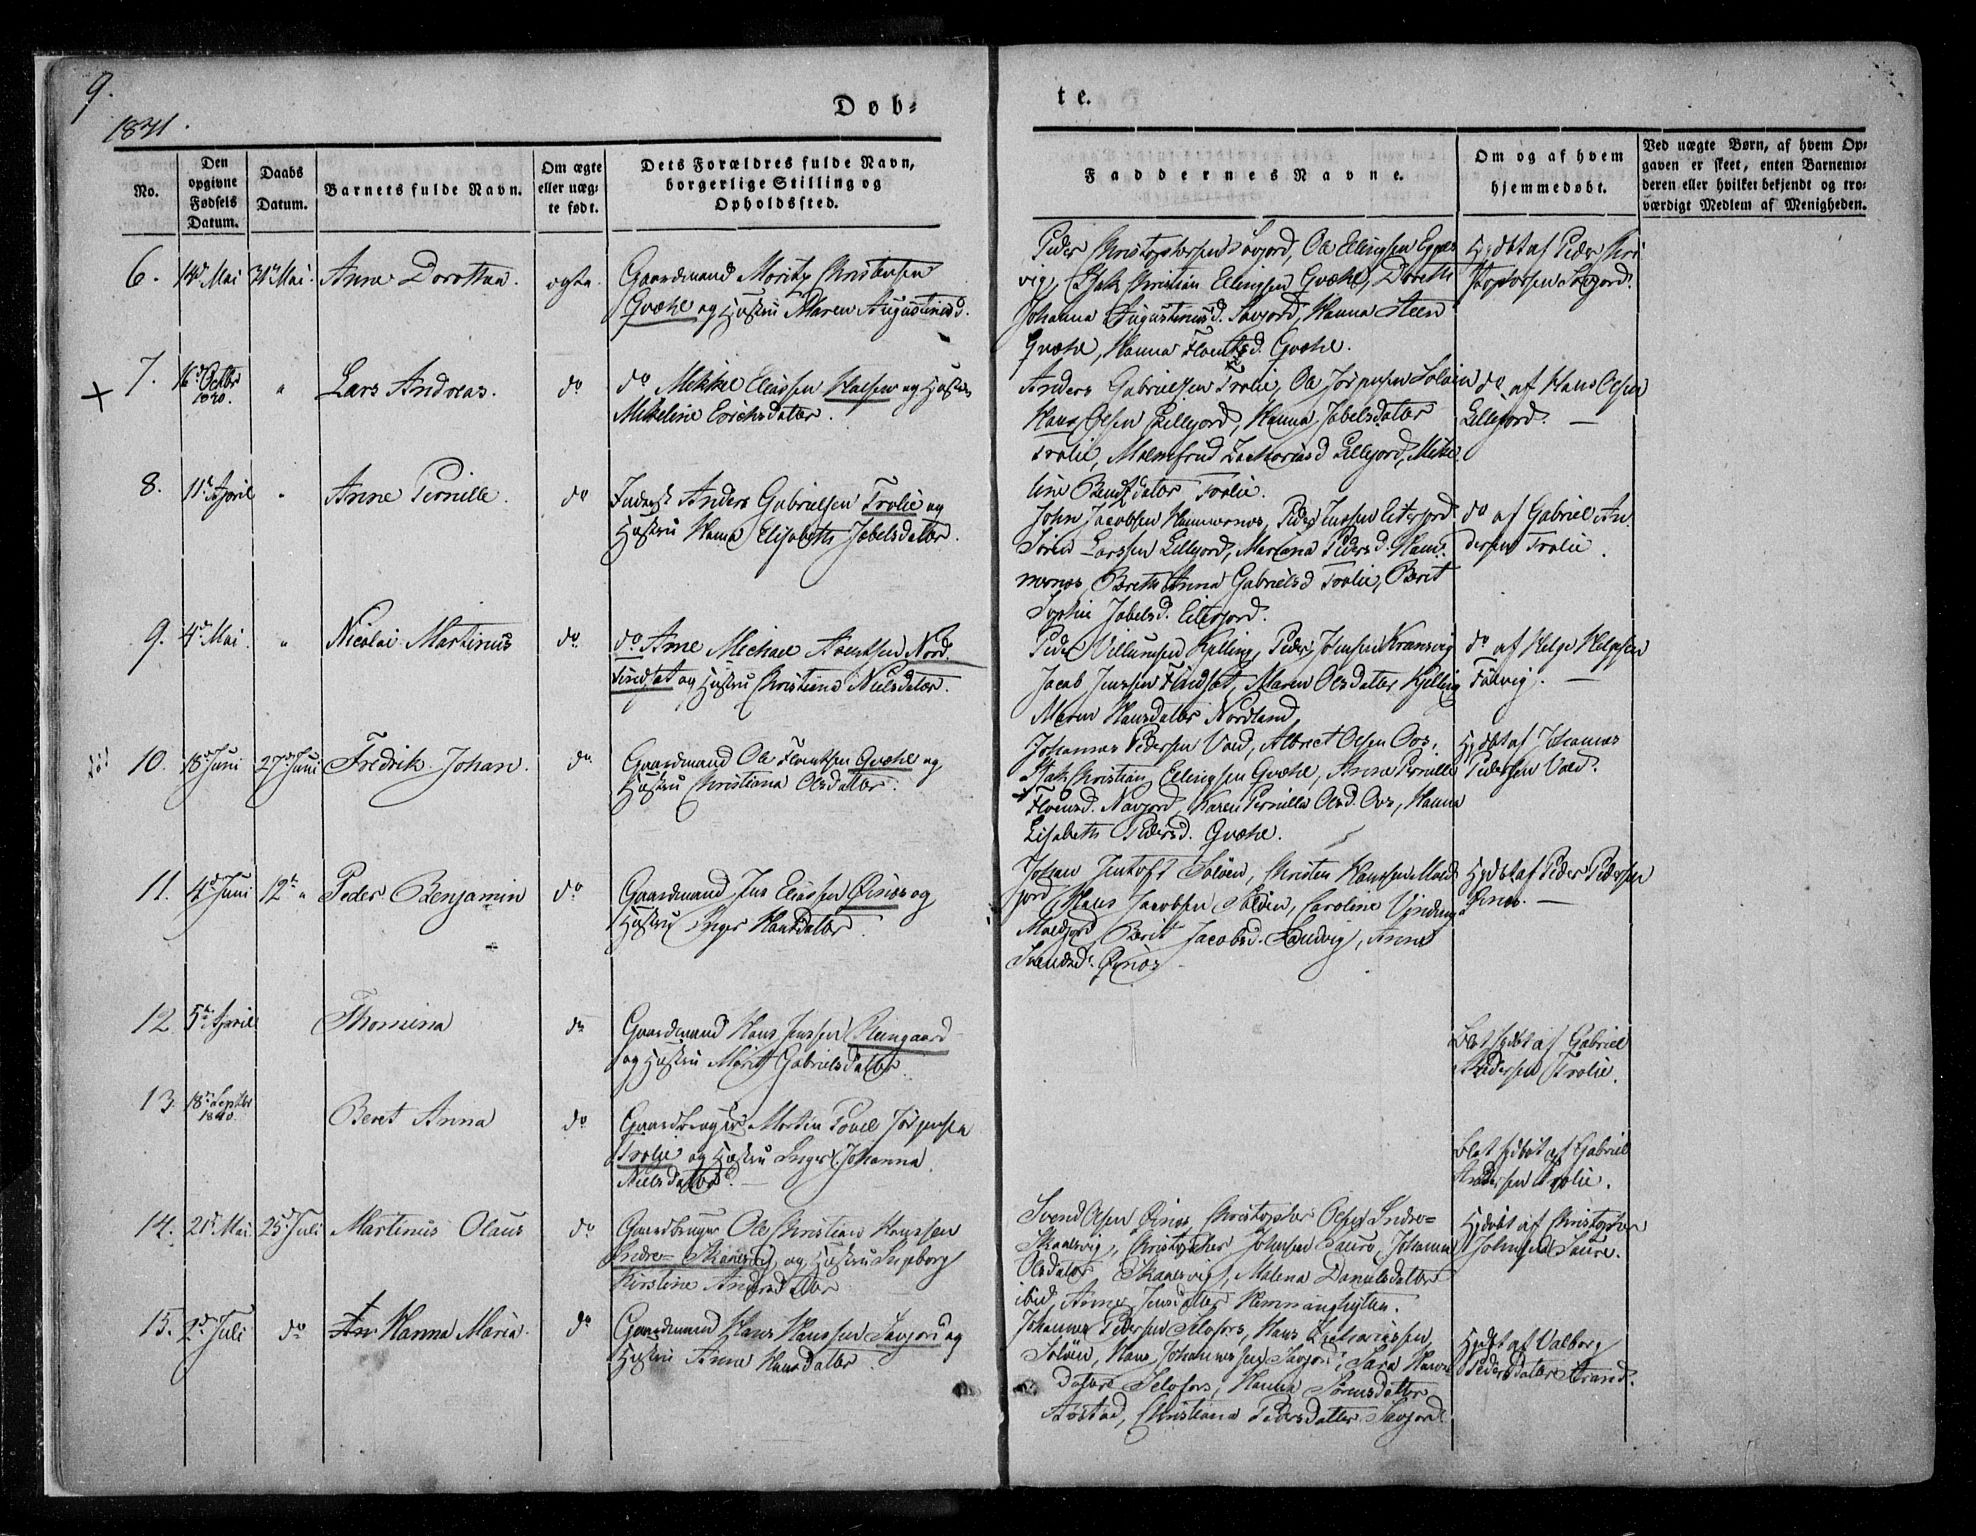 9.
1841.
Døb-
te.
No.
Den opgivne Fødsels Datum.
Daabs Datum.
Barnets fulde Navn.
Om ægte eller uæg- te født.
Dets Forældres fulde Navn, borgerlige Stilling og Opholdssted.
Faddernes Navne.
Om og af hvem hjemmedøbt.
Ved uægte Børn, af hvem Op- gaven er skeet, enten Barnemo- deren eller hvilket bekjendt og tro- værdigt Medlem af Menigheden.
6. 14d Mai 31te Mai. Anne Dorothea. ægte.
Gaardmand Moritz Christensen
Qvæhl og Hustru Maren Augustinusd.
Peder Christophersen Savjord, Ole Ellingsen
vig, Isak Christian Ellingsen Qvæhl, Dorethe
Johanna Augustinusd. Savjord, Hanna Steen
Qvæhl, Hanna Qvæhl.
Hjdøbt af Peder Chri
Savjord.
7. 16d Octbr 1840. " Lars Andreas. do
do Mikkel Eliassen og Hustru
Mikeline Erichsdatter.
Anders Gabrielsen Trolie, Ole Jørgensen Solöen
Hans Olsen Lillejord, Hanna Jobelsdatter
Trolie, Malmfrid Zachariasd Lillejord, Mike
line Bendtzdatter Trolie.
do af Hans Olsen
Lillejord. —
8. 11d April " Anne Pernille. do
Inderst Anders Gabrielsen Trolie og
Hustru Hanna Elisabeth Jobelsdatter.
John Jacobsen Hammernæs, Peder Jenssen Eiterjord
Sören Larssen Lillejord, Mariana Pedersd. Ham-
mernæs, Bereth Anna Gabrielsd Trolie, Berit
Sophie Jobelsd. Eiterjord.
do af Gabriel An
dersen Trolie.
9. 4d Mai. " Nicolai Martinus do
do Arne Michael Arentsen Nord
findset og Hustru Christiana Nielsdatter.
Peder Villumsen Kjelling, Peder Johnsen
Jacob Jenssen Findset, Maren Olsdatter Kjelling
Maren Hansdatter Nordland
do af Helge Helgesen
Tuvvig. —
10. 18d Juni 27d Juni Fredrik Johan. do
Gaardmand Ole Qvæhl og
Hustru Christiana Olsdatter.
Johannes Pedersen Vold, Albrect Olsen Oos,
Isak Christian Ellingsen Qvæhl, Anne Pernille
Navjord, Karen Pernille Olsd. Oos, Hanna
Elisabeth Pedersd. Qvæhl.
Hjdøbt af Johannes
Pedersen Vold.
11. 4d Juni 12te " Peder Benjamin do
Gaardmand Jens Eliassen Øinæs og
Hustru Inger Hansdatter.
Johan Jentoft Solöen, Christen Hanssen Mold
jord, Hans Jacobsen Solöen, Caroline
Moldjord, Berit Jacobsd. Sandvig, Anne
Svendsd. Øinæs
Hjdøbt af Peder Pedersen
Øinæs. —
12 5te April Thomina do
Gaardmand Hans Jenssen
og Hustru Marit Gabrielsdatter.
Blot hjdøbt af Gabriel
Andersen Trolie.
13. 18de Septbr 1840. Beret Anna do
Gaardbruger Morten Povel Jörgensen
Trolie og Hustru Inger Johanna
Nielsdatter. —
Blot hjdøbt af Gabriel
Andersen Trolie.
14. 21d Mai. 25d Juli Martinus Olaus do
Gaardbruger Ole Christian Hanssen
Indre- Skaalsvig og Hustru Ingeborg
Kirstine Andersdatter
Svend Olsen Øinæs, Christopher Olsen Indre-
Skaalsvig, Christopher Johnsen Saure, Johanna
Olsdatter Skaalsvig, Malena Danielsdatter
ibid, Anne Jensdatter
Hjdøbt af Christopher
Johnsen Saure.
15. 2d Juli do Hanna Maria. do
Gaardmand Hans Hanssen Savjord og
Hustru Anna Hansdatter.
Johannes Pedersen Selsfors, Hans Zachariassen
Solöen, Hans Johannessen Savjord, Sara Hans-
datter Selsfors, Hanna Sörensdatter
Christiana Pedersdatter Savjord
Hjdøbt af Valborg
Pedersdatter Strand.